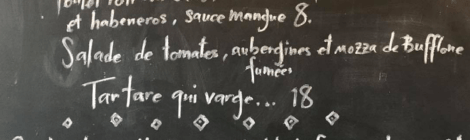 et habeneros, sauce mangue 8.
Salade de tomates, aubergines et mozza de Bufflone
fumées
Tartare qui varge... 18